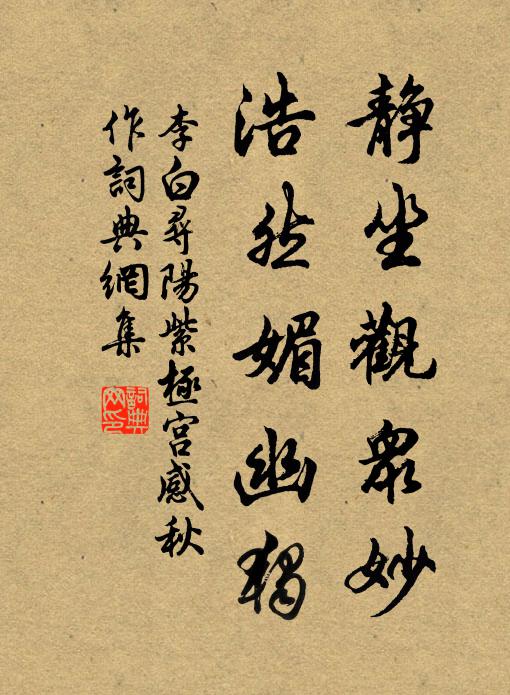 靜坐觀眾妙
浩然媚幽獨
李白尋陽紫極宮感秋
作詞典網集
詞典
网印